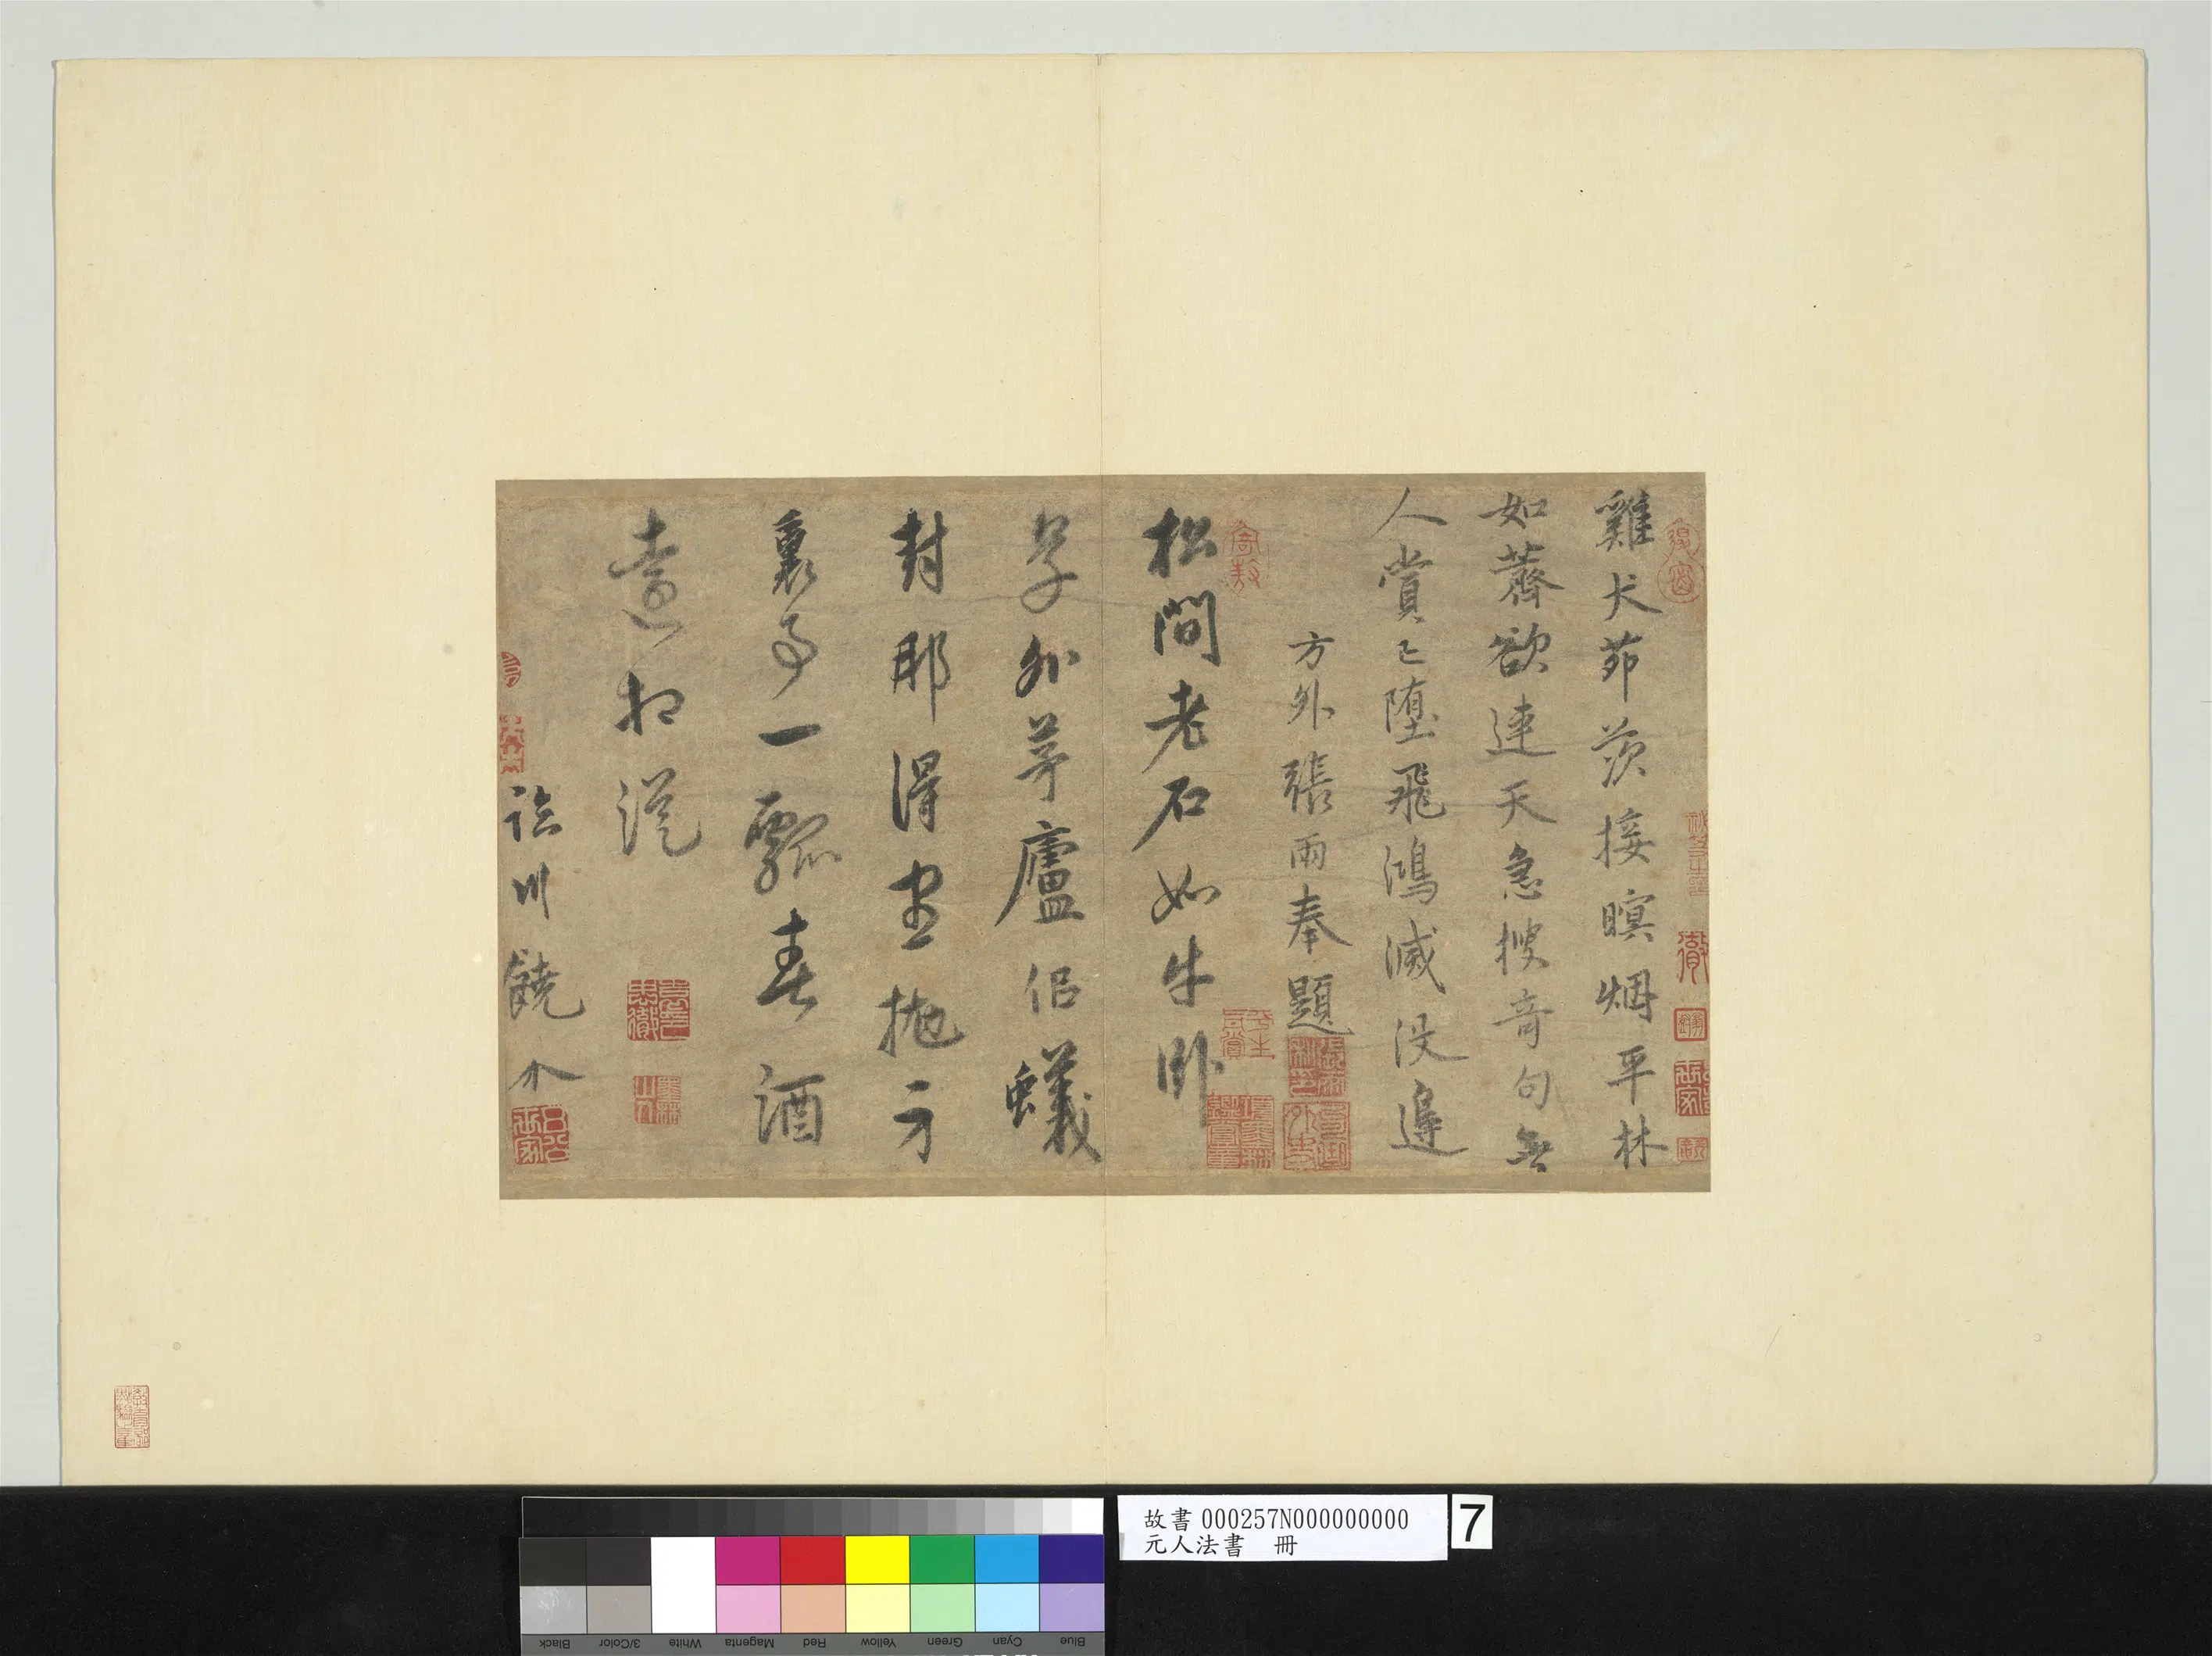 雞犬茆茨接暝烟平林
如薺欲連天急搜奇句無
人賞已墮飛鴻滅没邊
方外張雨奉題
松間老石如牛卧
草外茅廬侶蟻
封那得生抛方
裏事一瓢春酒
遠相從
臨川饒介
故書000257N000000000
元人法書 冊
7
Black
3/Color
White
Magenta
Red
Yellow
Green
Cyan
Blue